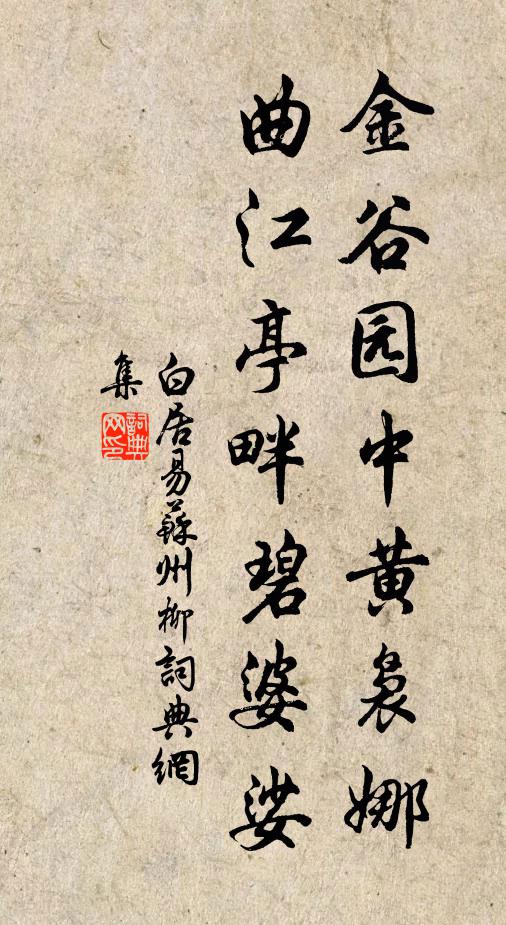 金谷园中黄袅娜
曲江亭畔碧婆娑
白居易蘇州柳詞典網
集
詞典网印